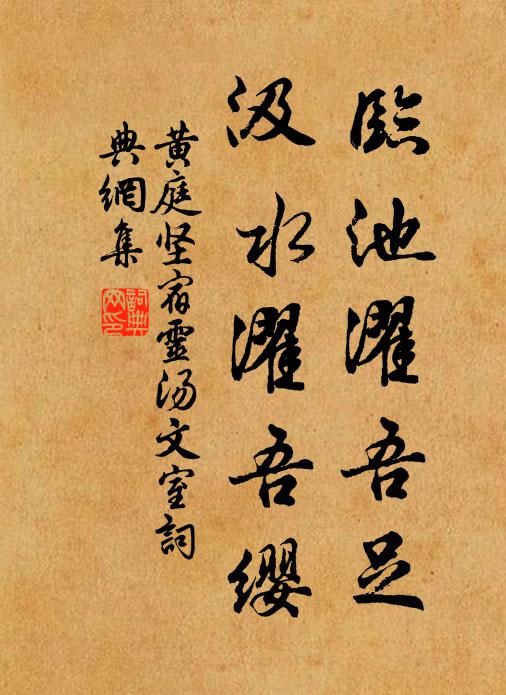 臨池濯吾足
汲水濯吾缨
黄庭坚宿靈汤文室詞
典網集
詞典
网印